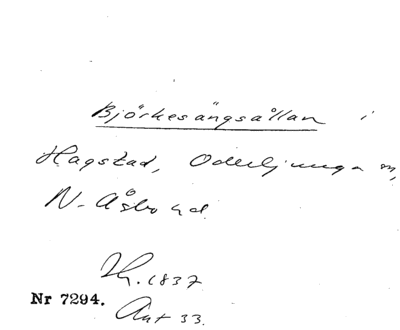 Björkesängsållan i
Hagstad, Oderljunga sn,
N. Åsbo hd.
Th. 1837
Nr 7294.
Ant 33.